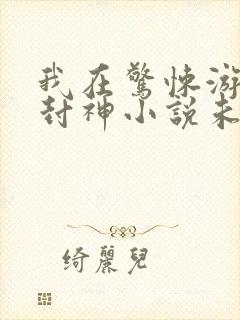 我在驚悚游
封神小說未
綺麗兒